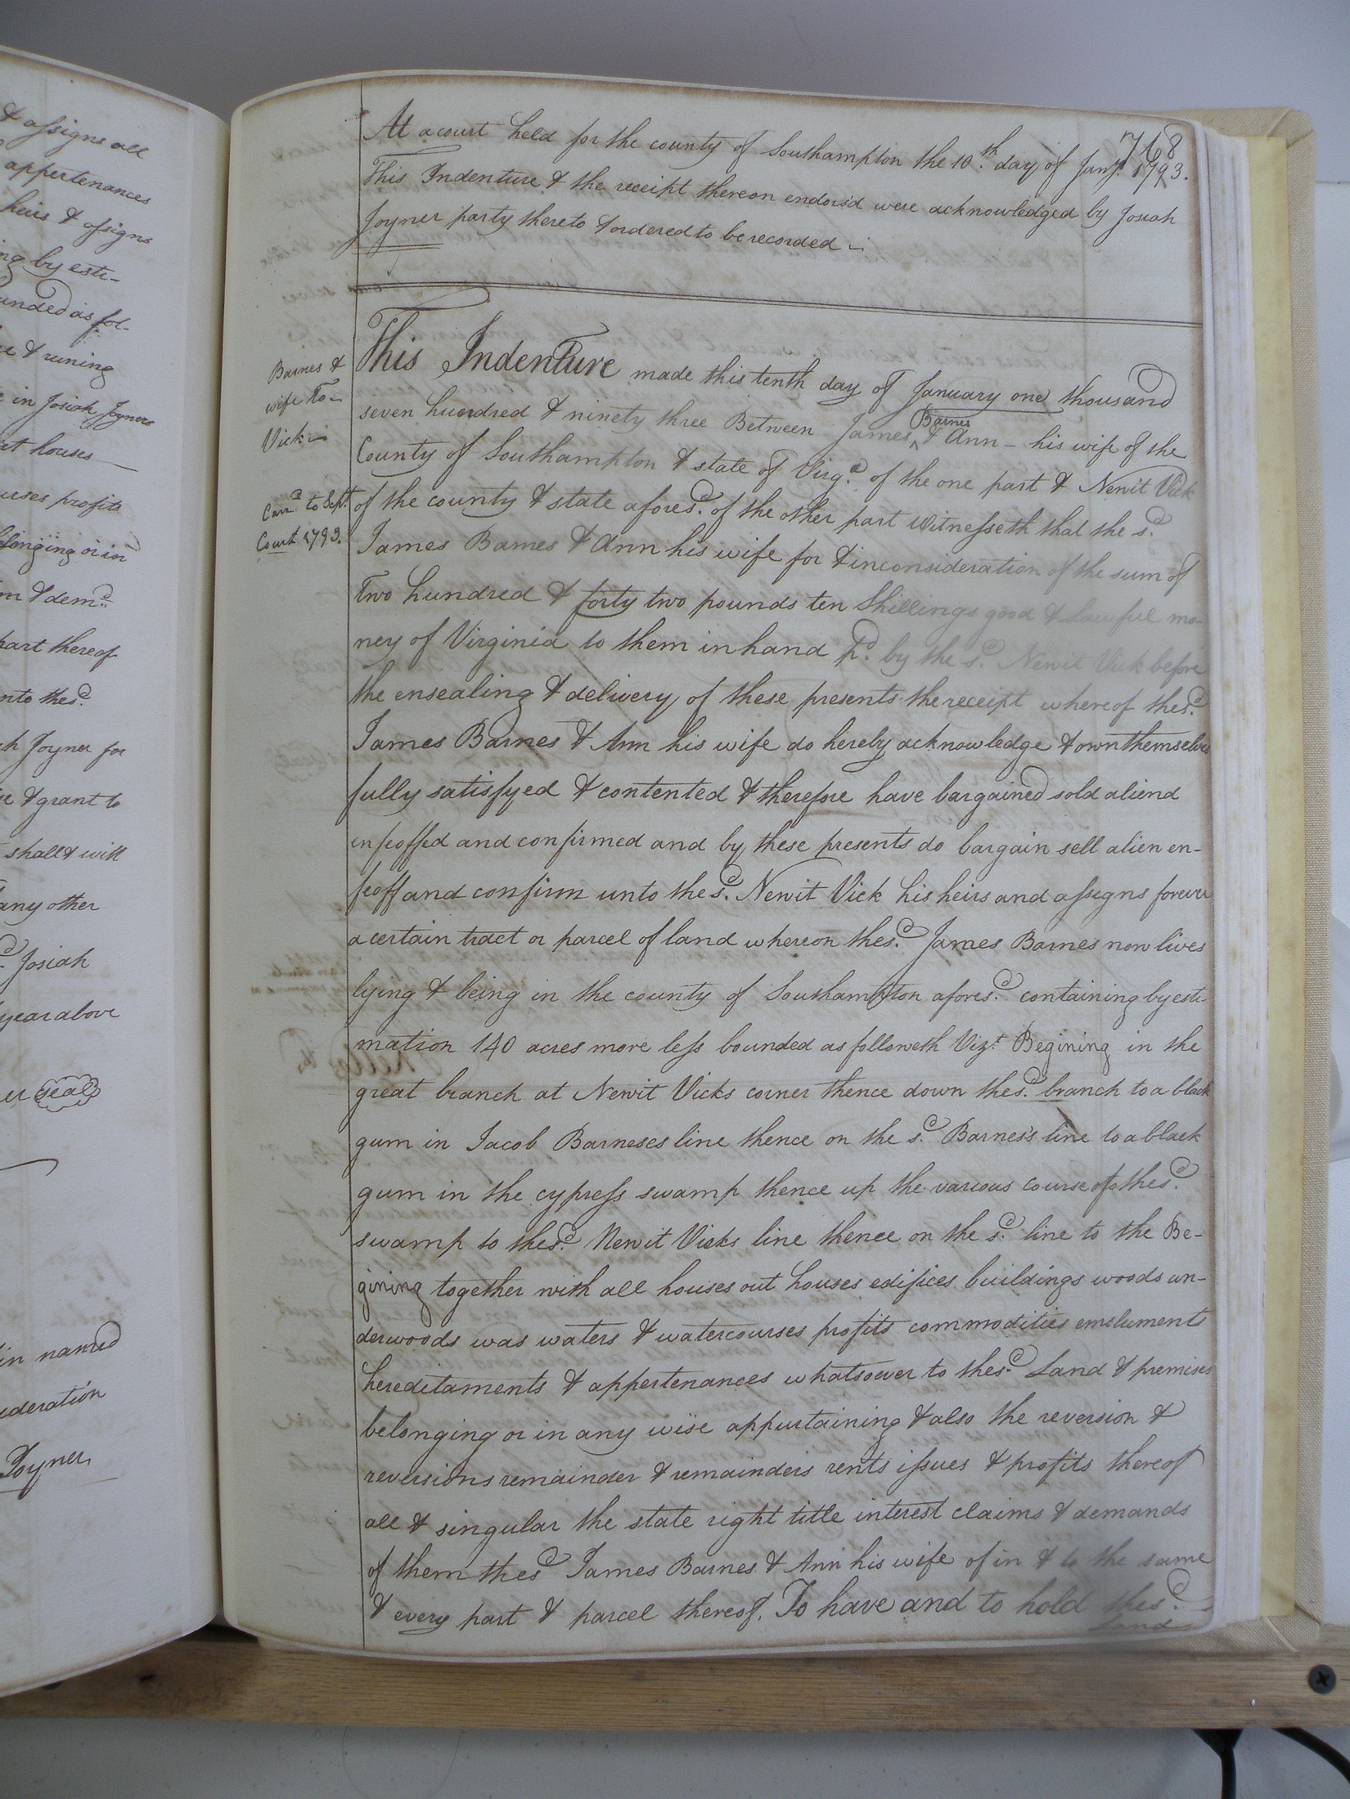 & assigns all
appertenances
heirs & assigns
ing by esti-
unded as fol-
& runing
in Josiah Joyners
at houses
urses profits
belonging or in
m & demd.
part thereof
unto the sd.
ah Joyner for
& grant to
shall & will
any other
sd. Josiah
year above
er seal
in named
ideration
Joyner
768
At a court held for the county of Southampton the 10th. day of Jany. 1793.
This Indenture & the receipt thereon endorsd were acknowledged by Josiah
Joyner party thereto & ordered to be recorded
Barnes &
wife To
Vick
Carrd. to Sept.
Court 1793.
This Indenture made this tenth day of January one thousand
seven hundred & ninety three Between James Barnes & Ann his wife of the
County of Southampton & state of Virga. of the one part & Newit Vick
of the county & state aforesd. of the other part Witnesseth that the sd.
James Barnes & Ann his wife for & inconsideration of the sum of
Two hundred & forty two pounds ten Shillings good & Lawful mo-
ney of Virginia to them in hand pd. by the sd. Newit Vick before
the ensealing & delivery of these presents the receipt whereof the sd.
James Barnes & Ann his wife do hereby acknowledge & own themselves
fully satisfyed & contented & therefore have bargained sold aliend
infeoffed and confirmed and by these presents do bargain sell alien en-
feoff and confirm unto the sd. Newit Vick his heirs and assigns forever
a certain tract or parcel of land whereon the sd. James Barnes now lives
lying & being in the county of Southampton aforesd. containing by esti-
mation 140 acres more less bounded as followeth Vizt. Begining in the
great branch at Newit Vicks corner thence down the sd. branch to a black
gum in Jacob Barneses line thence on the sd. Barnes's line to a black
gum in the cypress swamp thence up the various course of the sd.
swamp to the sd. Newit Vicks line thence on the sd. line to the Be-
gining together with all houses out houses edifices buildings woods un-
derwoods was waters & watercourses profits commodities emeluments
hereditaments & appertenances whatsoever to the sd. Land & premises
belonging or in any wise appurtaining & also the reversion &
reversions remainder & remainders rents issues & profits thereof
all & singular the state right title interest claims & demands
of them the sd James Barnes & Ann his wife of in & to the same
& every part & parcel thereof. To have and to hold the sd.
Land